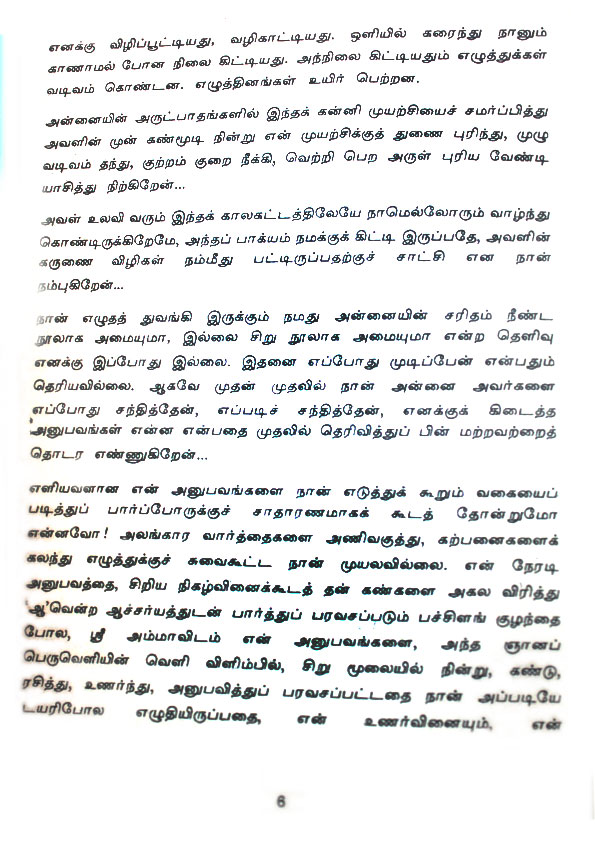 எனக்கு விழிப்பூட்டியது, வழிகாட்டியது. ஒளியில் கரைந்து நானும்
காணாமல் போன நிலை கிட்டியது. அந்நிலை கிட்டியதும் எழுத்துக்கள்
வடிவம் கொண்டன. எழுத்தினங்கள் உயிர் பெற்றன.
அன்னையின் அருட்பாதங்களில் இந்தக் கன்னி முயற்சியைச் சமர்ப்பித்து
அவளின் முன் கண்மூடி நின்று என் முயற்சிக்குத் துணை புரிந்து, முழு
வடிவம் தந்து, குற்றம் குறை நீக்கி, வெற்றி பெற அருள் புரிய வேண்டி
யாசித்து நிற்கிறேன்...
அவள் உலவி வரும் இந்தக் காலகட்டத்திலேயே நாமெல்லோரும் வாழ்ந்து
கொண்டிருக்கிறேமே, அந்தப் பாக்யம் நமக்குக் கிட்டி இருப்பதே, அவளின்
கருணை விழிகள் நம்மீது பட்டிருப்பதற்குச் சாட்சி என நான்
நம்புகிறேன்...
நான் எழுதத் துவங்கி இருக்கும் நமது அன்னையின் சரிதம் நீண்ட
நூலாக அமையுமா, இல்லை சிறு நூலாக அமையுமா என்ற தெளிவு
எனக்கு இப்போது இல்லை. இதனை எப்போது முடிப்பேன் என்பதும்
தெரியவில்லை. ஆகவே முதன் முதலில் நான் அன்னை அவர்களை
எப்போது சந்தித்தேன், எப்படிச் சந்தித்தேன், எனக்குக் கிடைத்த
அனுபவங்கள் என்ன என்பதை முதலில் தெரிவித்துப் பின் மற்றவற்றைத்
தொடர எண்ணுகிறேன்...
எளியவளான என் அனுபவங்களை நான் எடுத்துக் கூறும் வகையைப்
படித்துப் பார்ப்போருக்குச் சாதாரணமாகக் கூடத் தோன்றுமோ
என்னவோ! அலங்கார வார்த்தைகளை அணிவகுத்து, கற்பனைகளைக்
கலந்து எழுத்துக்குச் சுவைகூட்ட நான் முயலவில்லை. என் நேரடி
அனுபவத்தை, சிறிய நிகழ்வினைக்கூடத் தன் கண்களை அகல விரித்து
'ஆ'வென்ற ஆச்சர்யத்துடன் பார்த்துப் பரவசப்படும் பச்சிளங் குழந்தை
போல, ஸ்ரீ அம்மாவிடம் என் அனுபவங்களை, அந்த ஞானப்
பெருவெளியின் வெளி விளிம்பில், சிறு மூலையில் நின்று, கண்டு,
ரசித்து, உணர்ந்து, அனுபவித்துப் பரவசப்பட்டதை நான் அப்படியே
டயரிபோல எழுதியிருப்பதை, என் உணர்வினையும், என்
6